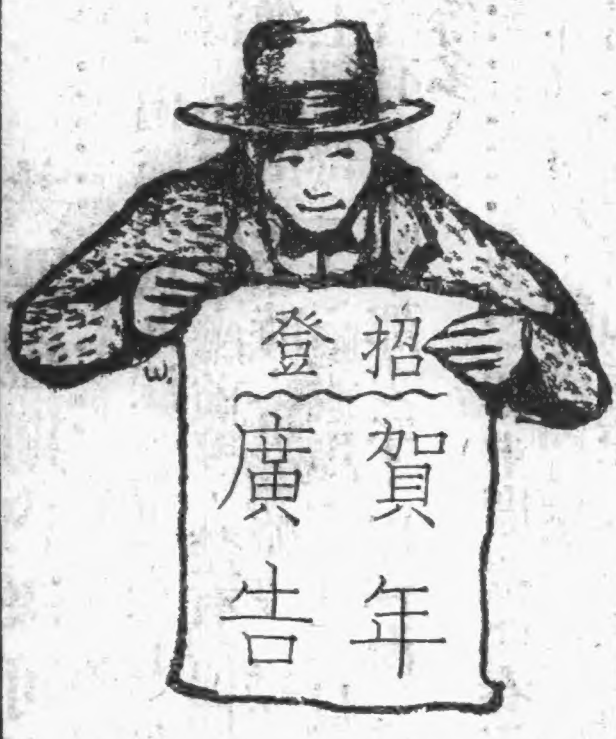 招登
賀年
廣告